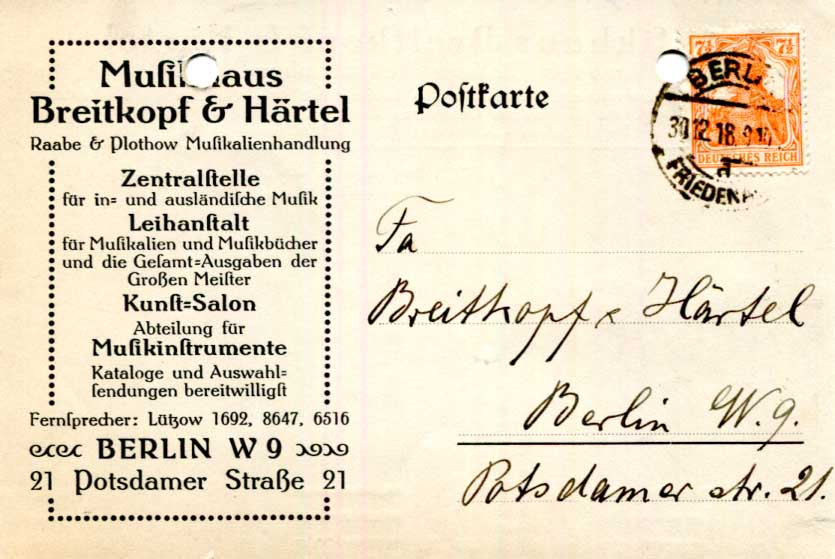 Muſikhaus
Breitkopf & Härtel
Raabe & Plothow Muſikalienhandlung
Zentralſtelle
für in= und ausländiſche Muſik
Leihanſtalt
für Muſikalien und Muſikbücher
und die Geſamt=Ausgaben der
Großen Meiſter
Kunſt=Salon
Abteilung für
Muſikinſtrumente
Kataloge und Auswahl=
ſendungen bereitwilligſt
Fernſprecher: Lützow 1692, 8647, 6516
BERLIN W 9
21 Potsdamer Straße 21
Poſtkarte
7½ 7½
DEUTSCHES REICH
30.12.18.
a
Fa
Breitkopf & Härtel
Berlin W. 9.
Potsdamer str. 21.